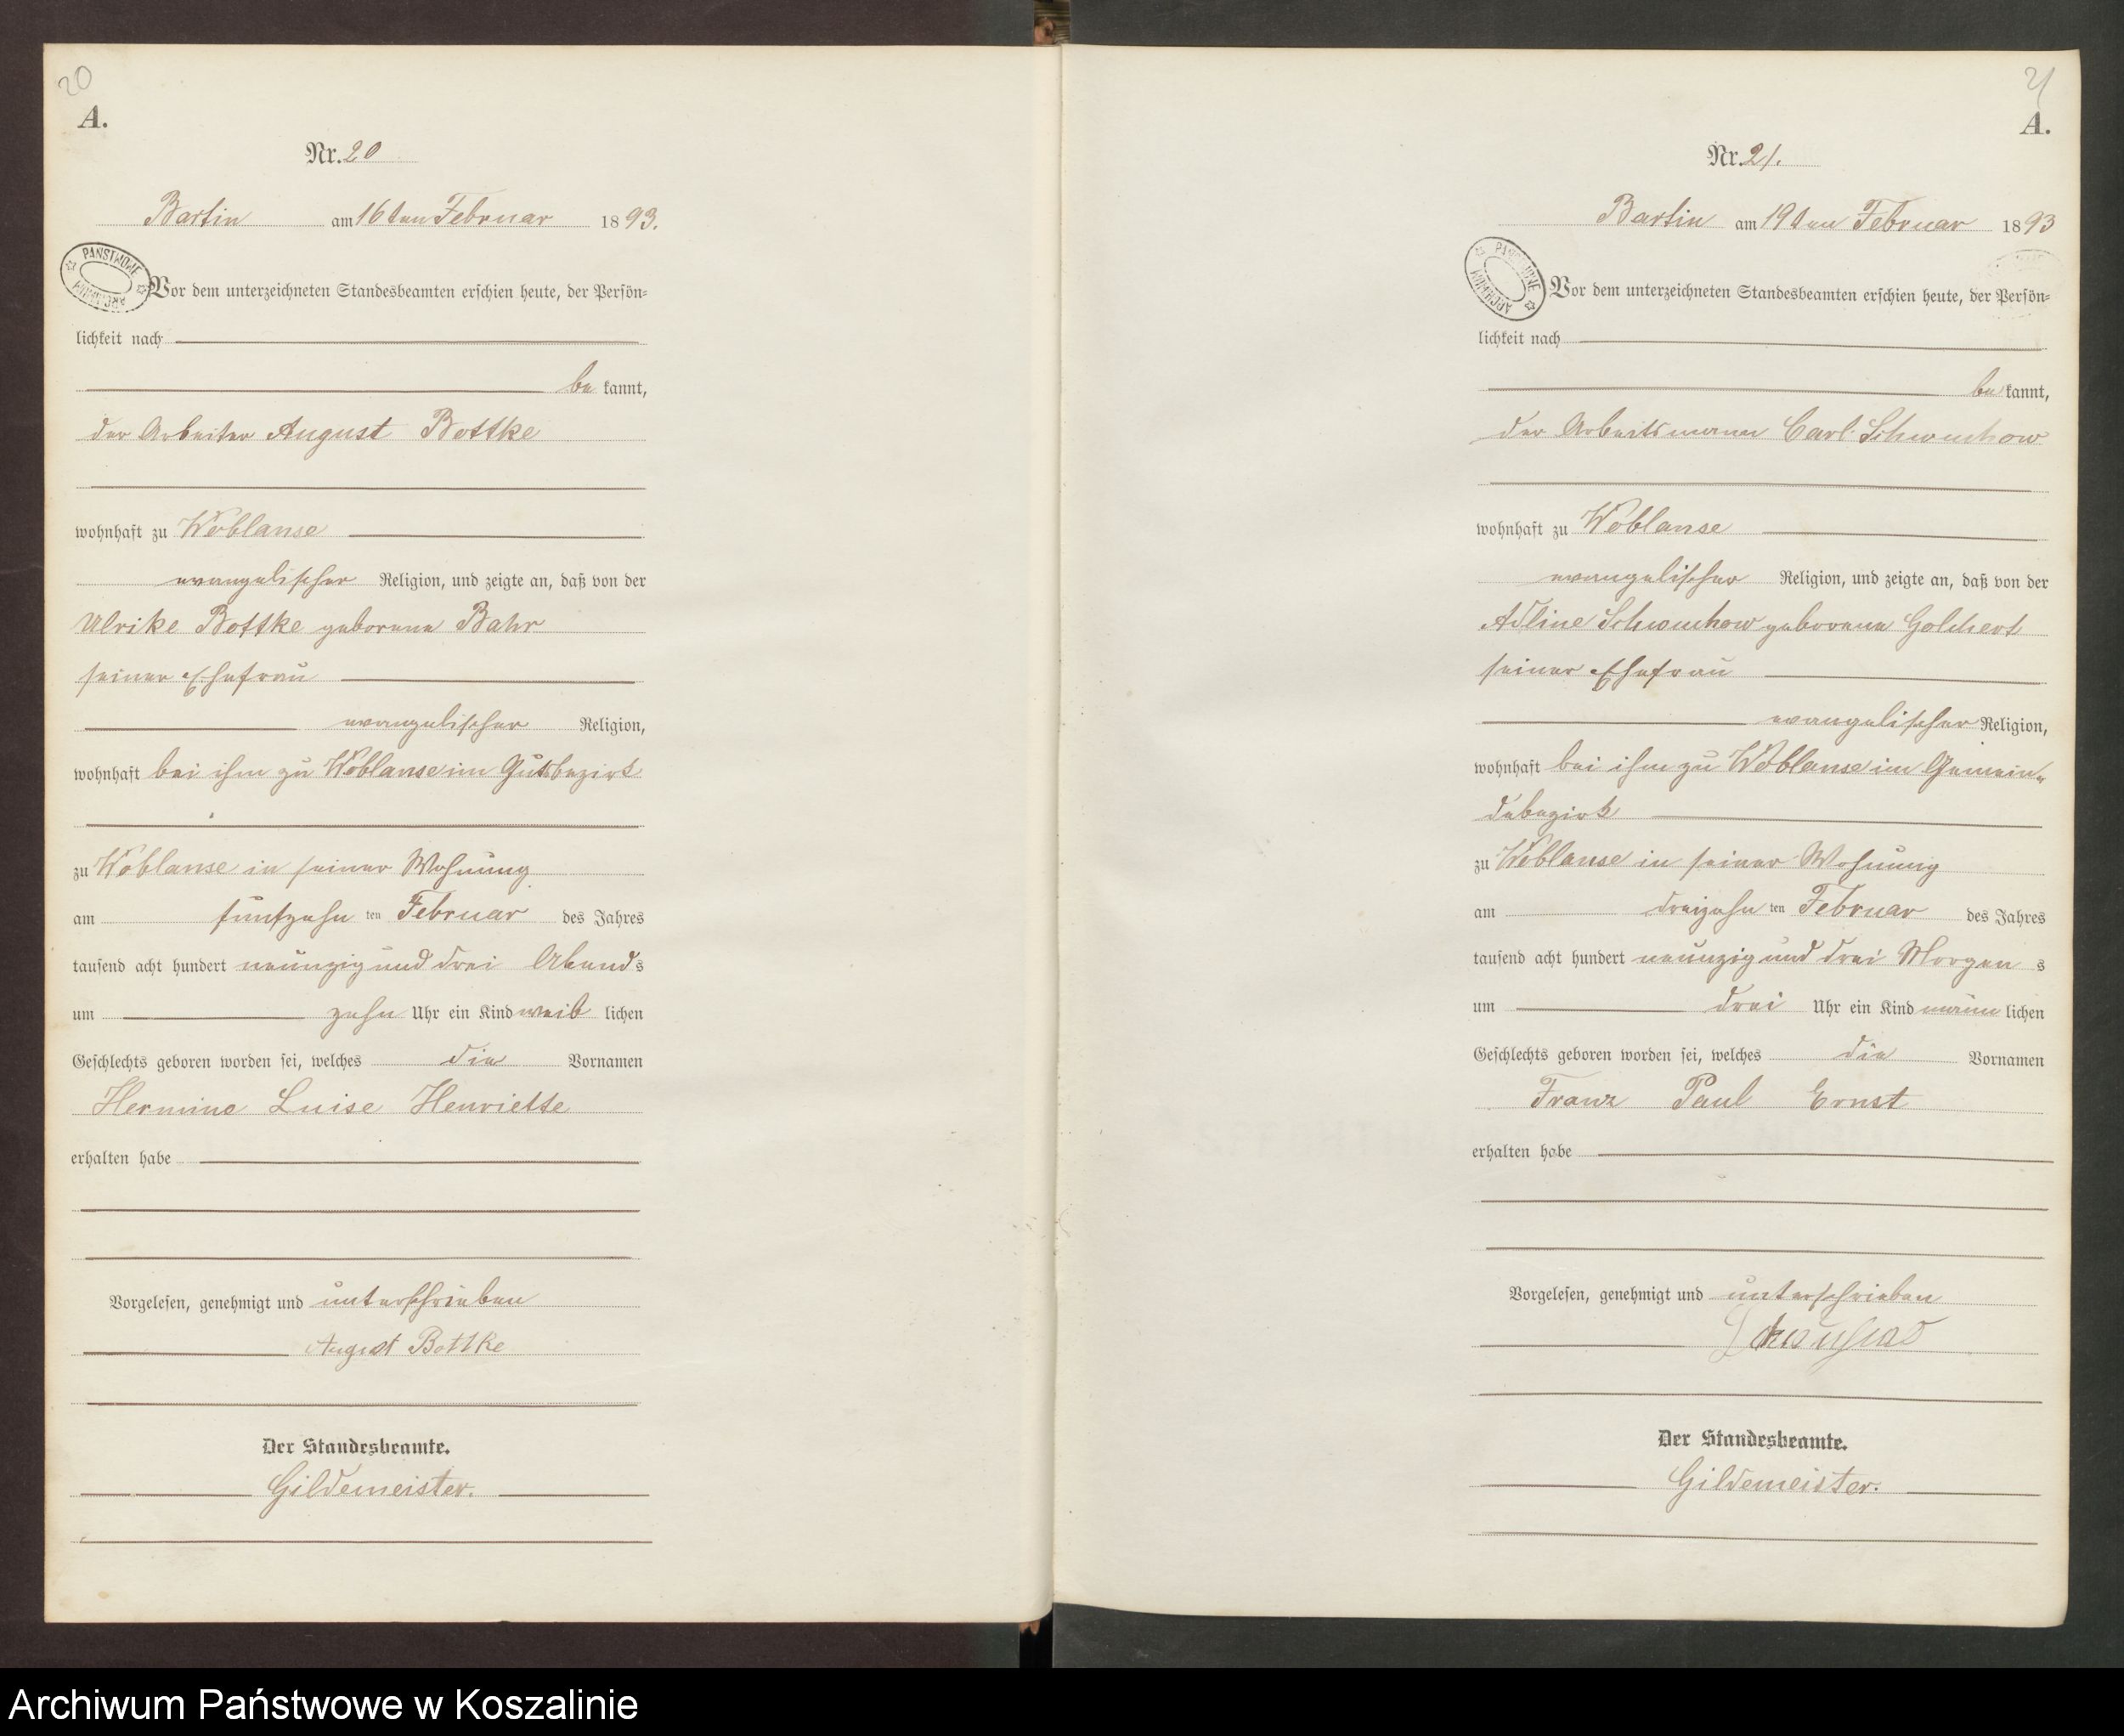 20
A.
Nr. 20
Bartin am 16ten Februar 1893.
PAŃSTWOWE ARCHIWUM
Vor dem unterzeichneten Standesbeamten erschien heute, der Persön=
lichkeit nach
be kannt,
der Arbeiter August Bottke
wohnhaft zu Woblanse
evangelischer Religion, und zeigte an, daß von der
Ulrike Bottke geborene Bahr
seiner Ehefrau
evangelischer Religion,
wohnhaft bei ihm zu Woblanse im Gutsbezirk
zu Woblanse in seiner Wohnung
am fünfzehn ten Februar des Jahres
tausend acht hundert neunzig und drei Abends
um zehn Uhr ein Kind weib lichen
Geschlechts geboren worden sei, welches die Vornamen
Hermine Luise Henriette
erhalten habe
Vorgelesen, genehmigt und unterschrieben
August Bottke
Der Standesbeamte.
Gildemeister.
21
A.
Nr. 21.
Bartin am 19ten Februar 1893
PAŃSTWOWE ARCHIWUM
Vor dem unterzeichneten Standesbeamten erschien heute, der Persön=
lichkeit nach
be kannt,
der Arbeitsmann Carl Schwuchow
wohnhaft zu Woblanse
evangelischer Religion, und zeigte an, daß von der
Schwuchow geborene
seiner Ehefrau
evangelischer Religion,
wohnhaft bei ihm zu Woblanse im Gemein-
debezirk
zu Woblanse in seiner Wohnung
am dreizehn ten Februar des Jahres
tausend acht hundert neunzig und drei Morgens
um drei Uhr ein Kind männ lichen
Geschlechts geboren worden sei, welches die Vornamen
Franz Paul Ernst
erhalten habe
Vorgelesen, genehmigt und unterschrieben
Der Standesbeamte.
Gildemeister.
Archiwum Państwowe w Koszalinie